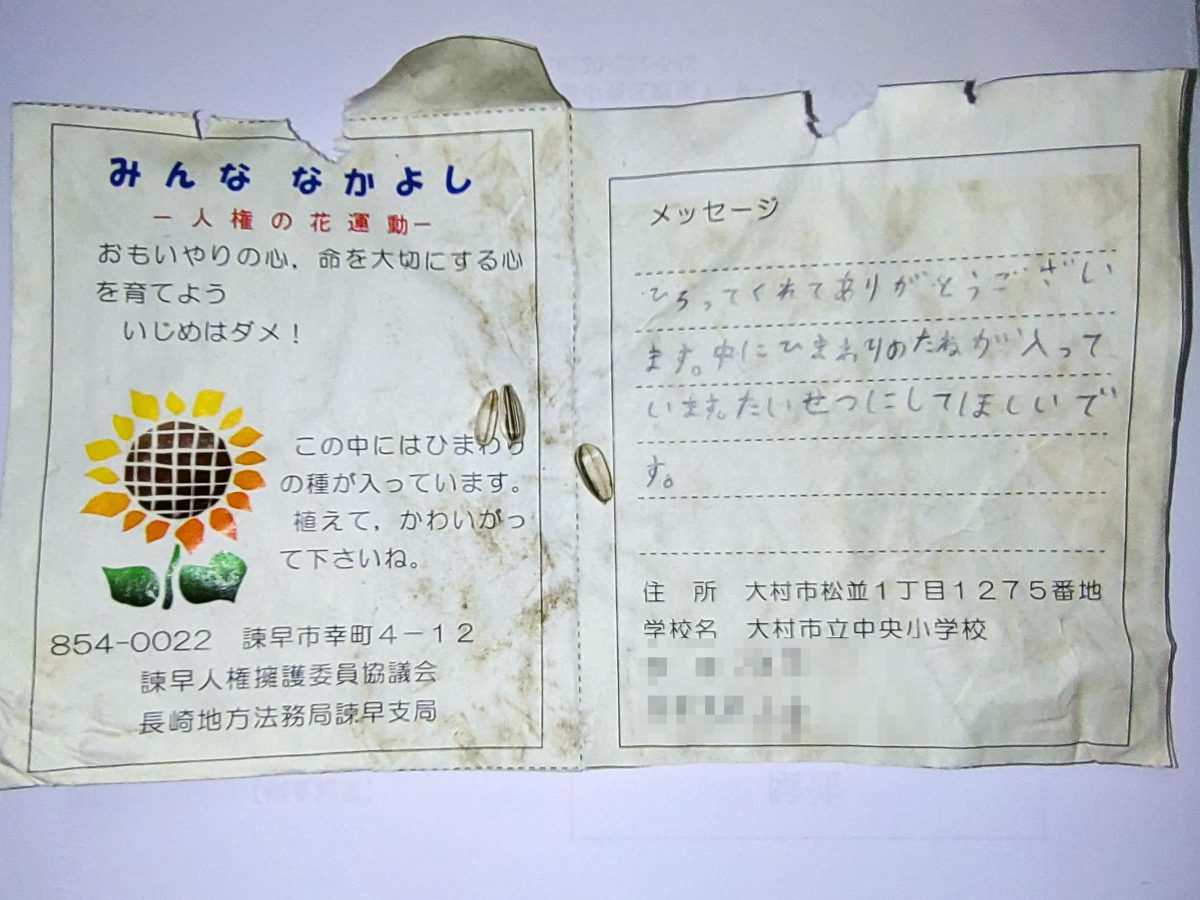 みんな なかよし
ー人権の花運動ー
おもいやりの心，命を大切にする心
を育てよう
いじめはダメ！
この中にはひまわり
の種が入っています。
植えて，かわいがっ
て下さいね。
854-0022 諫早市幸町４－１２
諫早人権擁護委員協議会
長崎地方法務局諫早支局
メッセージ
ひろってくれてありがとうござい
ます。中にひまわりのたねが入って
います。たいせつにしてほしいで
す。
住 所 大村市松並１丁目１２７５番地
学校名 大村市立中央小学校